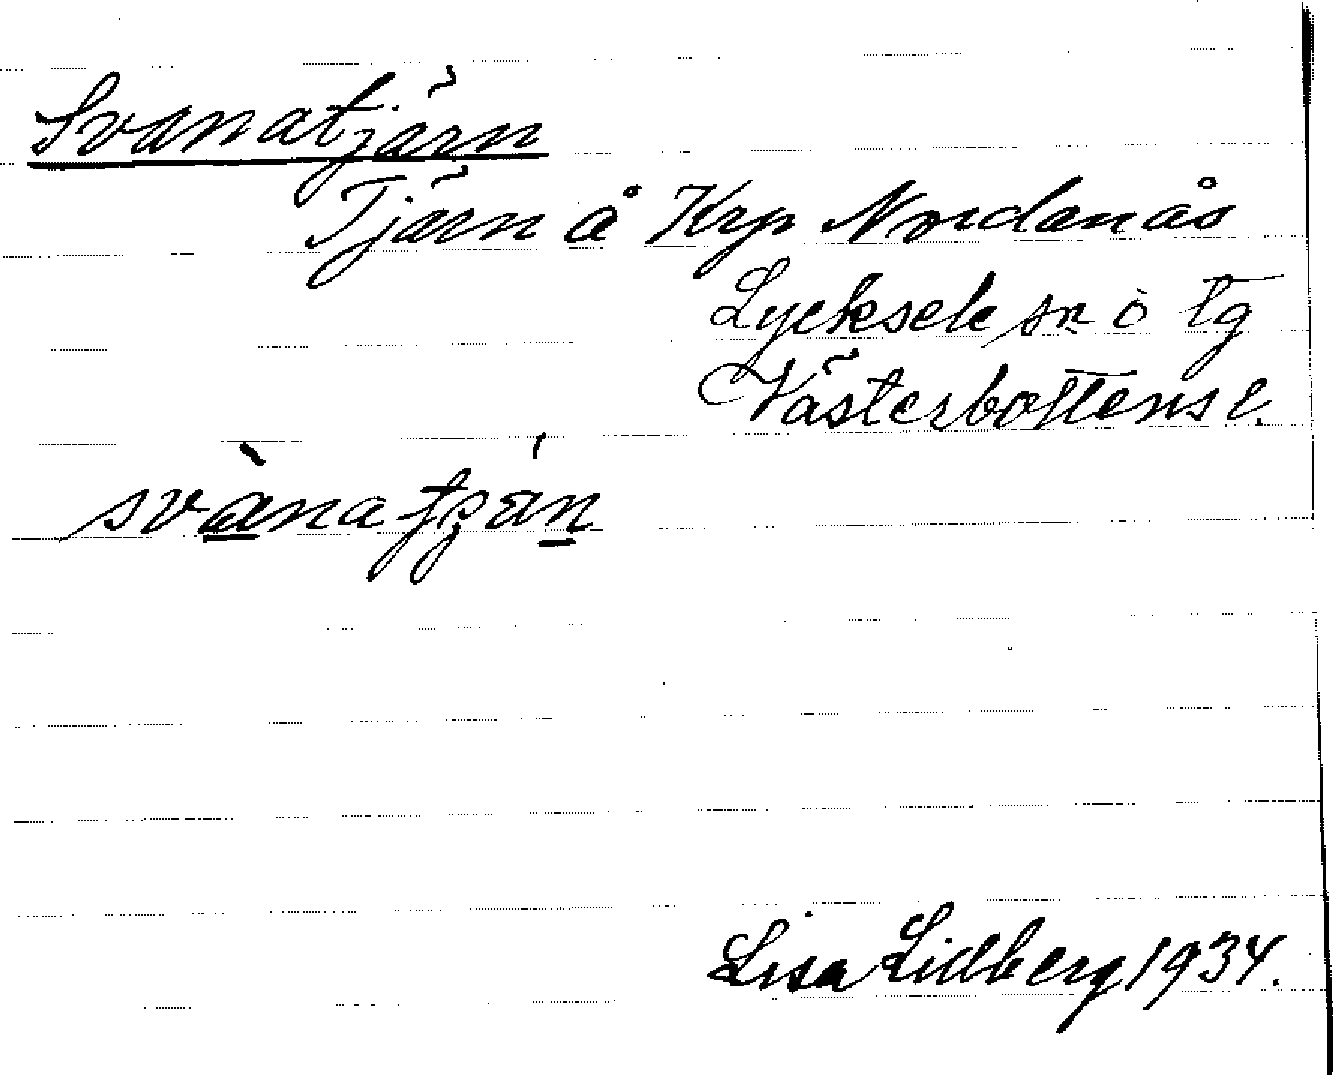 Svanatjärn
Tjärn å Krp Nordanås
Lycksele sn o tg
Västerbottens l.
svànatjän
Lisa Lidberg 1934.